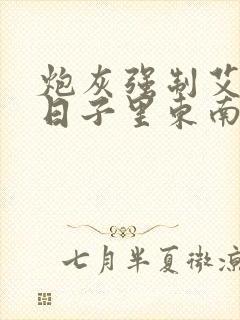 炮灰强制艾
日子里东南
七月半夏微凉